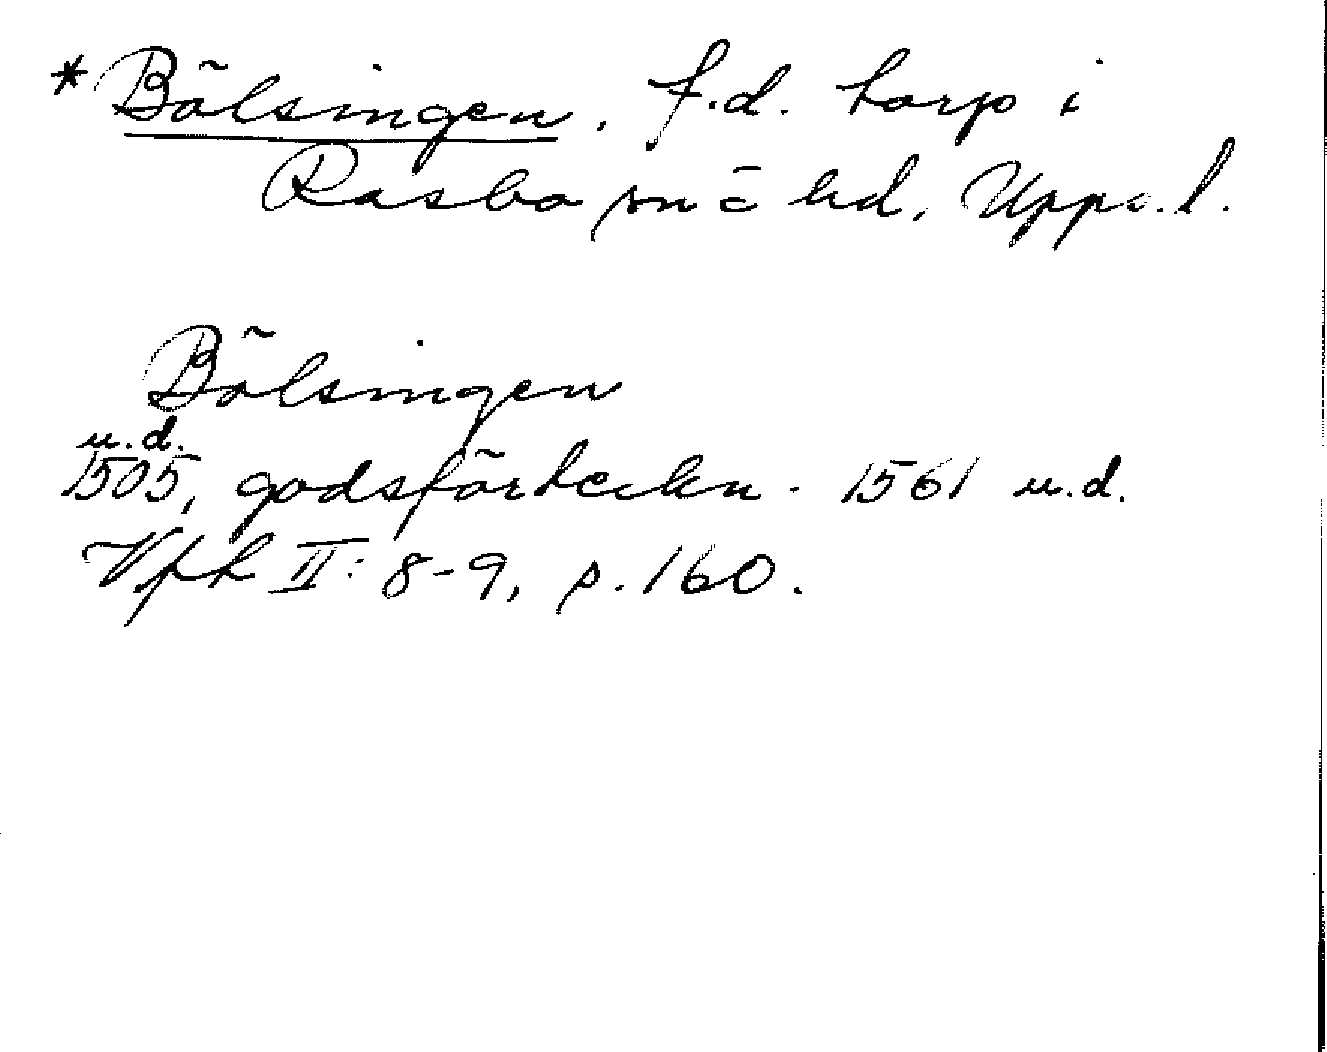 *Bölsingen, f.d. torp i
Rasbo sn o hd, Upps. l.
Bölsingen
u.d.
1505, godsförteckn. 1561 u.d.
Vph II: 8-9, p. 160.